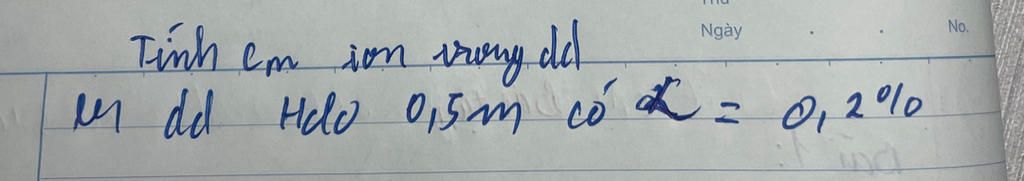 Ngày
No.
Tính Cm ion trong dd
dd HClO 0,5m có α = 0,2%